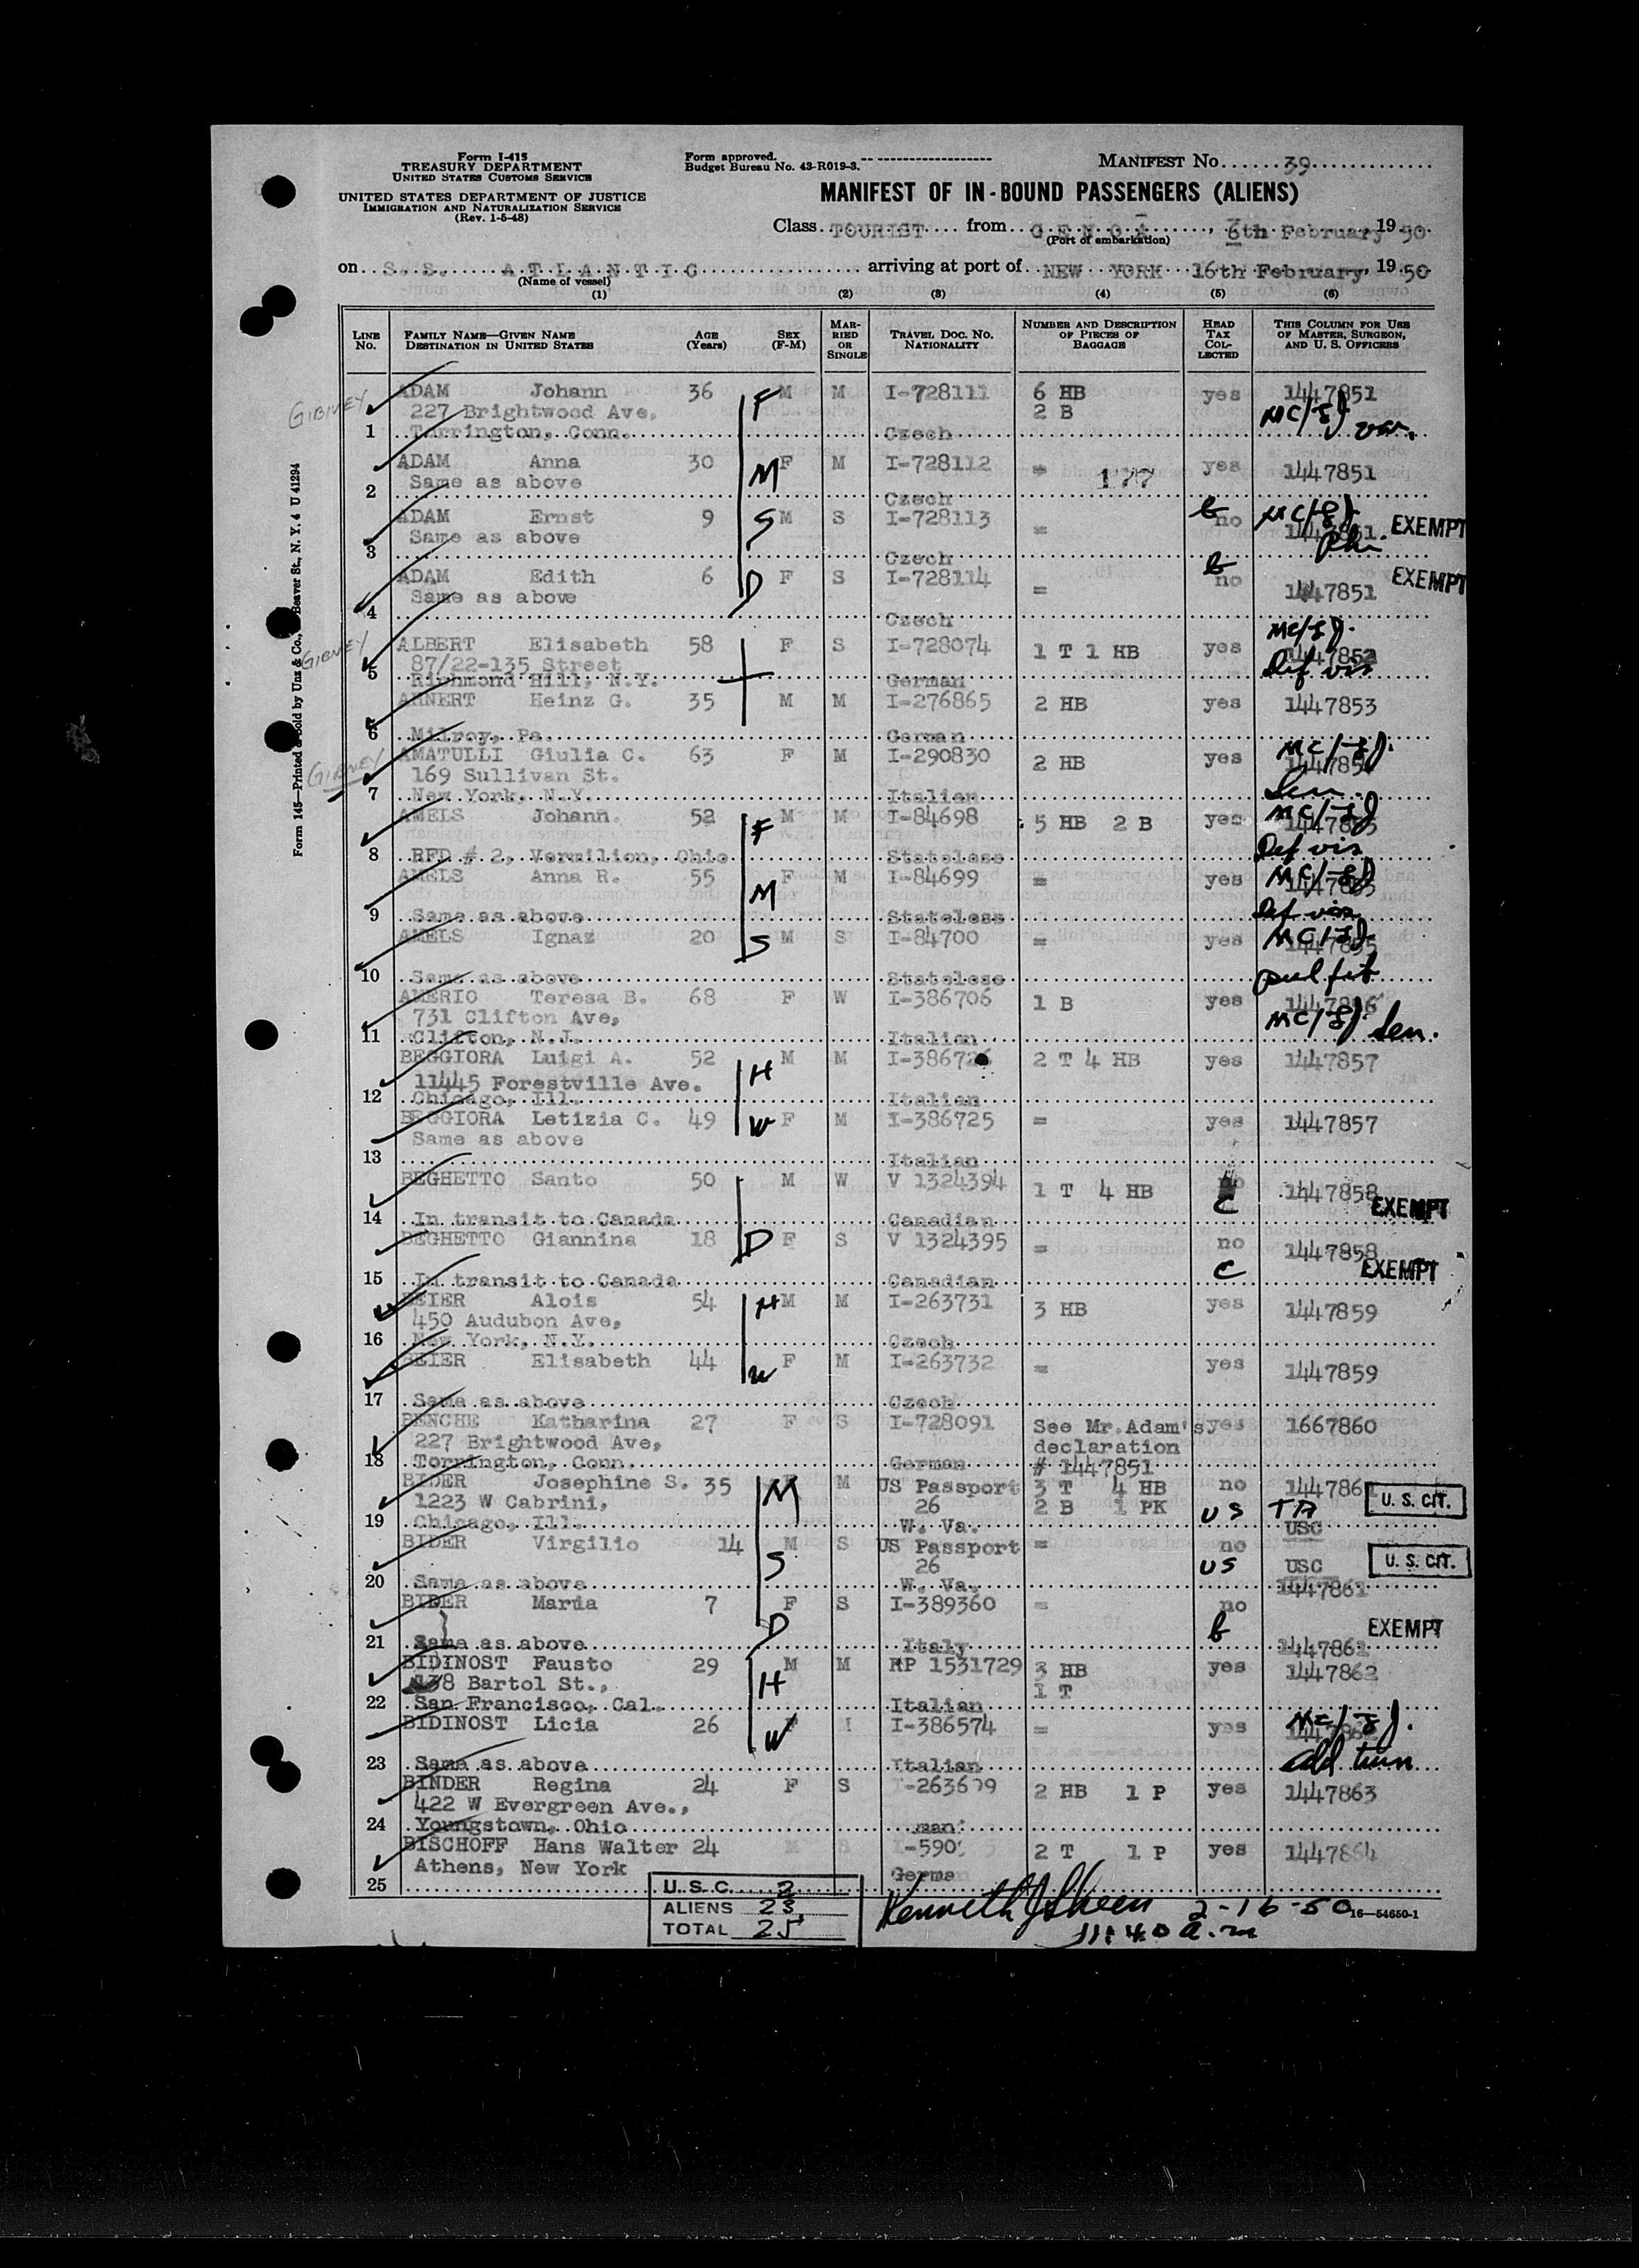 Form I-415
TREASURY DEPARTMENT
UNITED STATES CUSTOMS SERVICE
UNITED STATES DEPARTMENT OF JUSTICE
IMMIGRATION AND NATURALIZATION SERVICE
(Rev. 1-5-48)
Form approved.
Budget Bureau No. 43-R019-3.
MANIFEST No. 39
MANIFEST OF IN-BOUND PASSENGERS (ALIENS)
Class TOURIST from GENOA, 6th February 1950
(Port of embarkation)
on S.S. ATLANTIC arriving at port of NEW YORK 16th February, 1950
(Name of vessel)
(1) (2) (3) (4) (5) (6)
LINE No. FAMILY NAME—GIVEN NAME DESTINATION IN UNITED STATES AGE (Years) SEX (F-M) MARRIED OR SINGLE TRAVEL DOC. No. NATIONALITY NUMBER AND DESCRIPTION OF PIECES OF BAGGAGE HEAD TAX COLLECTED THIS COLUMN FOR USE OF MASTER, SURGEON, AND U. S. OFFICERS
ADAM Johann 36 F M M I-728111 6 HB yes 1447851
227 Brightwood Ave, 2 B
1 Torrington, Conn. Czech
ADAM Anna 30 M F M I-728112 = 177 yes 1447851
Same as above
2 Czech
ADAM Ernst 9 S M S I-728113 = no EXEMPT
Same as above 1447851
3 Czech
ADAM Edith 6 D F S I-728114 = no 1447851 EXEMPT
Same as above
4 Czech
GIBNEY
ALBERT Elisabeth 58 F S I-728074 1 T 1 HB yes 1447852
87/22-135 Street Def vis
5 Richmond Hill, N.Y. German
AHNERT Heinz G. 35 M M I-276865 2 HB yes 1447853
6 Milroy, Pa. German
GIBNEY
AMATULLI Giulia C. 63 F M I-290830 2 HB yes 1447854
169 Sullivan St. Sen.
7 New York, N.Y. Italian
AMELS Johann. 52 F M M I-84698 5 HB 2 B yes 1447855
8 RFD # 2, Vermilion, Ohio Stateless Def vis
AMELS Anna R. 55 M F M I-84699 = yes 1447855
9 Same as above Stateless Def vis
AMELS Ignaz 20 S M S I-84700 = yes 1447855
10 Same as above Stateless
AMERIO Teresa B. 68 F W I-386706 1 B yes 1447856
731 Clifton Ave, Sen.
11 Clifton, N.J. Italian
BEGGIORA Luigi A. 52 H M M 2 T 4 HB yes 1447857
11445 Forestville Ave.
12 Chicago, Ill. Italian
BEGGIORA Letizia C. 49 W F M I-386725 = yes 1447857
Same as above
13 Italian
BEGHETTO Santo 50 M W V 1324394 1 T 4 HB C 1447858 EXEMPT
14 In transit to Canada Canadian
BEGHETTO Giannina 18 D F S V 1324395 = no C 1447858 EXEMPT
15 In transit to Canada Canadian
BEIER Alois 54 H M M I-263731 3 HB yes 1447859
450 Audubon Ave,
16 New York, N.Y. Czech
BEIER Elisabeth 44 W F M I-263732 = yes 1447859
17 Same as above Czech
BENCHE Katharina 27 F S I-728091 See Mr.Adam's yes 1667860
227 Brightwood Ave, declaration
18 Torrington, Conn. German # 1447851
BIDER Josephine S. 35 M M US Passport 3 T 4 HB no 1447861 U. S. CIT.
1223 W Cabrini, 26 2 B 1 PK US
19 Chicago, Ill. W. Va. USC
BIDER Virgilio 14 S M S US Passport = no U. S. CIT.
26 US USC
20 Same as above W. Va. 1447861
BIDER Maria 7 D F S I-389360 = no EXEMPT
21 Same as above Italy 1447861
BIDINOST Fausto 29 H M M RP 1531729 3 HB yes 1447862
138 Bartol St., 1 T
22 San Francisco, Cal. Italian
BIDINOST Licia 26 W I-386574 = yes
23 Same as above Italian
BINDER Regina 24 F S I-263609 2 HB 1 P yes 1447863
422 W Evergreen Ave.,
24 Youngstown, Ohio
BISCHOFF Hans Walter 24 2 T 1 P yes 1447864
Athens, New York German
25
U.S.C. 2
ALIENS 23
TOTAL 25
Kenneth J Sheen 2-16-50
11:40 a.m
16—54650-1
Form 145—Printed & Sold by Unz & Co., Beaver St., N. Y. 4 U 41294